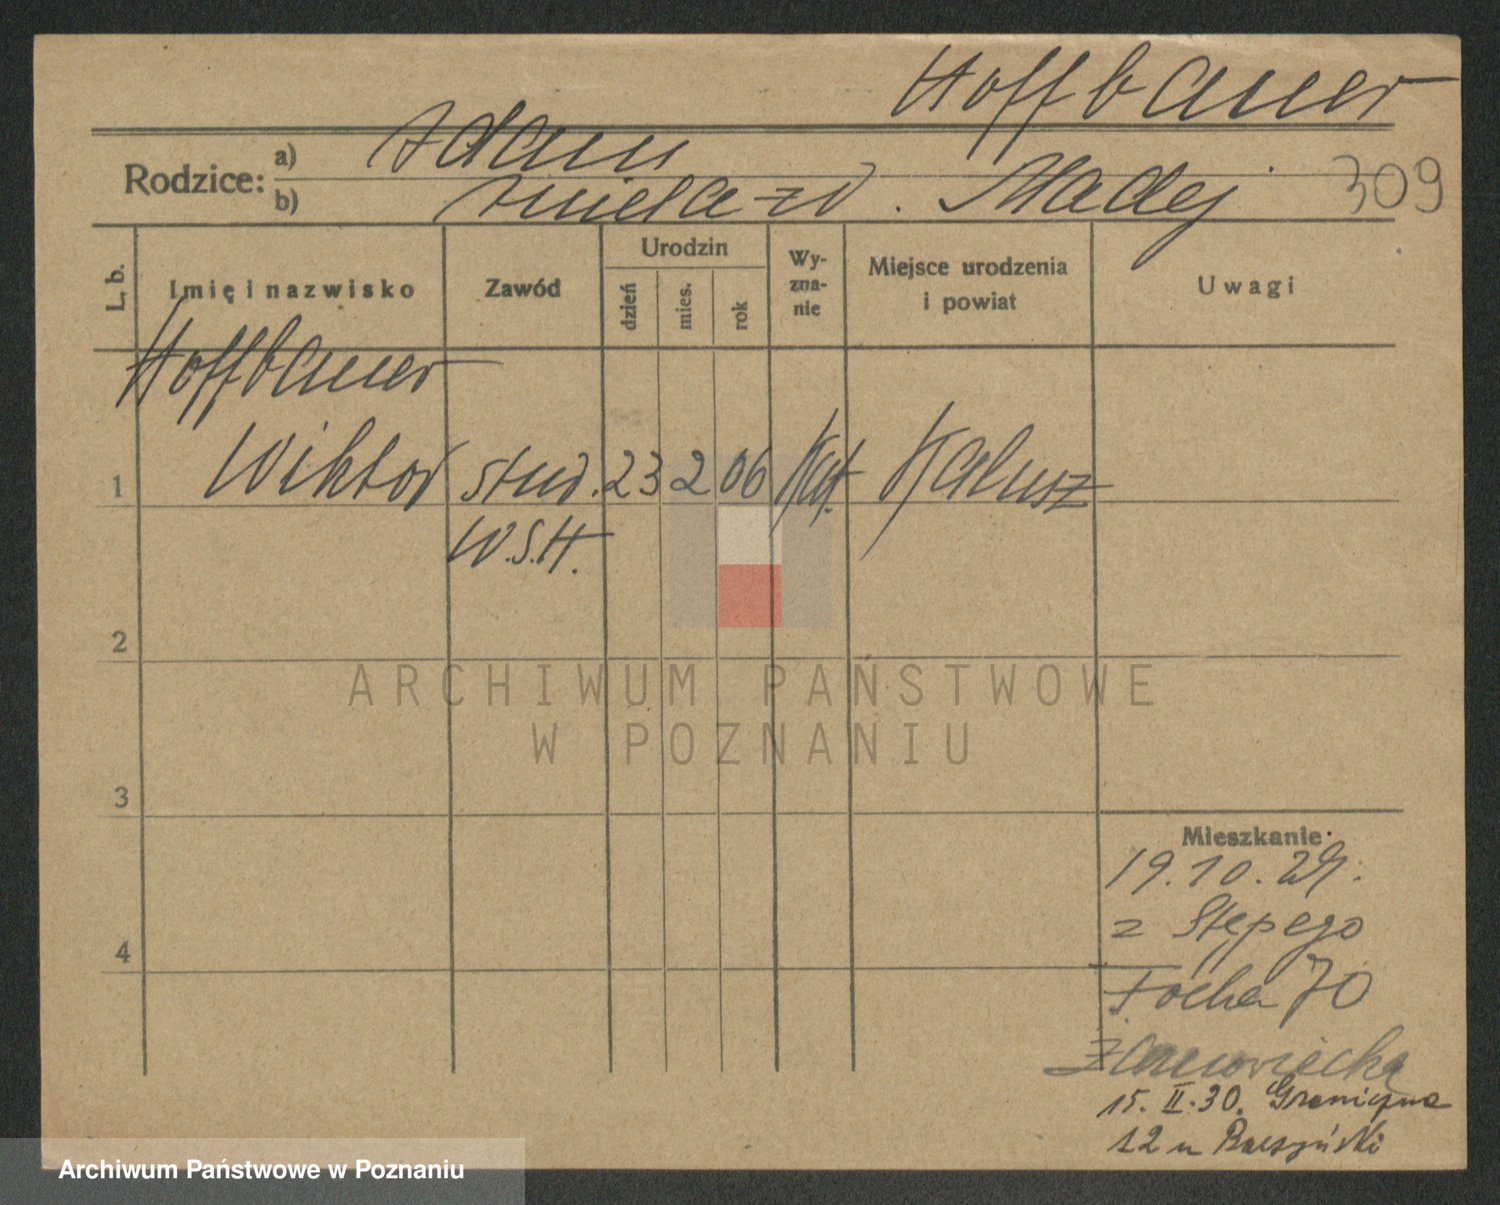 Hoffbauer
Rodzice: a) Adam
b) Aniela zd. Madej 309
L. b. Imię i nazwisko Zawód Urodzin dzień mies. rok Wy-zna-nie Miejsce urodzenia i powiat Uwagi
Hoffbauer
1 Wiktor stud. 23 2 06 Kat. Kałusz
W.S.H.
2
ARCHIWUM PAŃSTWOWE
W POZNANIU
3
Mieszkanie
19.10.29.
z
4
Focha 70
15. II. 30. Graniczna
12 u
Archiwum Państwowe w Poznaniu